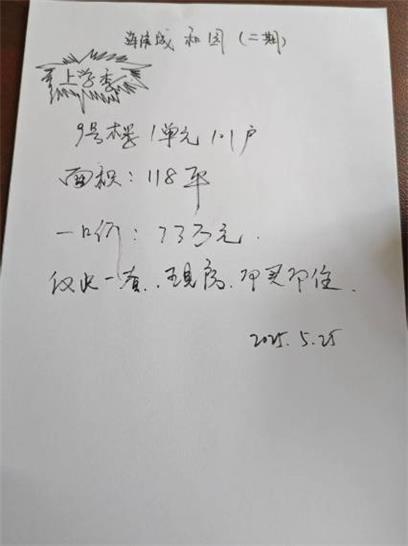 和园（二期）
上学季
9号楼1单元101户
面积：118平
一口价：73万元.
仅此一套.现房.即买即住.
2025.5.25